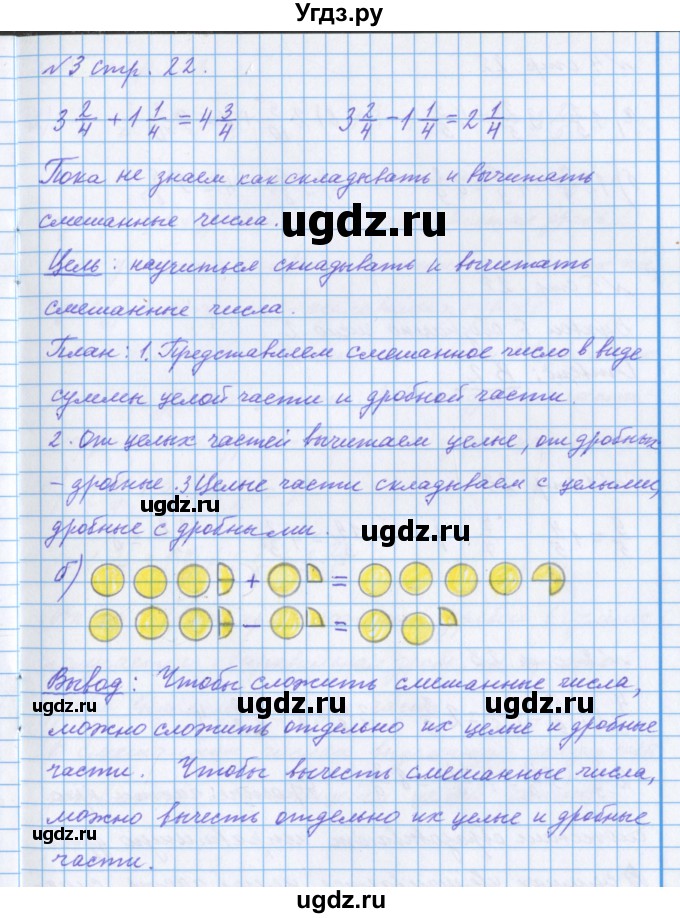 Угдз.ру
№3 стр. 22.
3 2/4 + 1 1/4 = 4 3/4     3 2/4 - 1 1/4 = 2 1/4
Пока не знаем как складывать и вычитать
смешанные числа.
ugdz.ru
Цель: научиться складывать и вычитать
смешанные числа.
План: 1. Представляем смешанное число в виде
суммы целой части и дробной части.
2. От целых частей вычитаем целые, от дробных
- дробные. 3 Целые части складываем с целыми,
ugdz.ru
дробные с дробными.
ugdz.ru
б) + =
- =
Вывод: Чтобы сложить смешанные числа,
ugdz.ru ugdz.ru ugdz.ru
можно сложить отдельно их целые и дробные
части. Чтобы вычесть смешанные числа,
можно вычесть отдельно их целые и дробные
части.
ugdz.ru